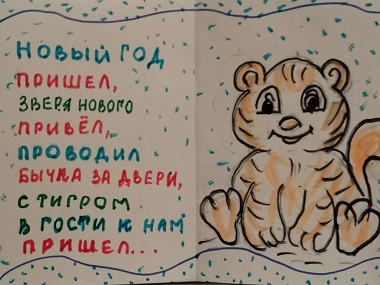 НОВЫЙ ГОД
ПРИШЕЛ,
ЗВЕРЯ НОВОГО
ПРИВЁЛ,
ПРОВОДИЛ
БЫЧКА ЗА ДВЕРИ,
С ТИГРОМ
В ГОСТИ К НАМ
ПРИШЕЛ...